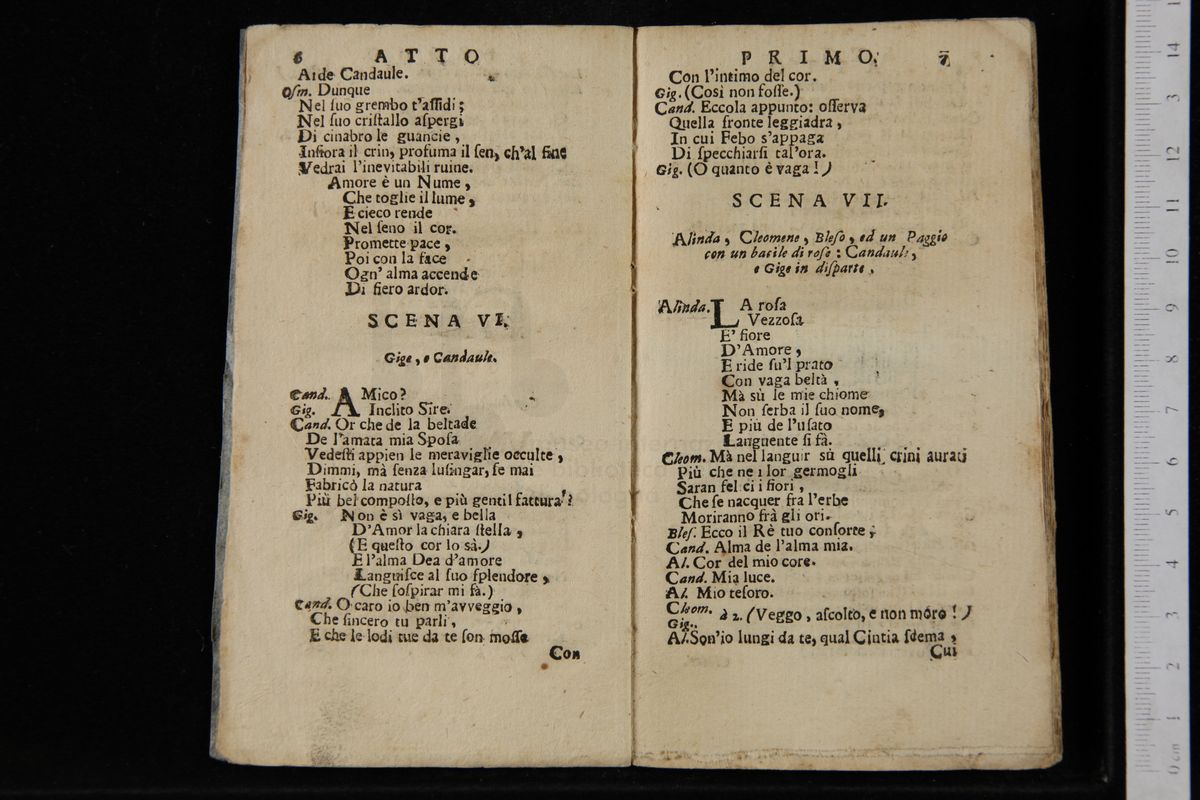 6 ATTO
Arde Candaule.
Osm. Dunque
Nel suo grembo t'assidi;
Nel suo cristallo aspergi
Di cinabro le guancie,
Infiora il crin, profuma il sen, ch'al fine
Vedrai l'inevitabili ruine.
Amore è un Nume,
Che toglie il lume,
E cieco rende
Nel seno il cor.
Promette pace,
Poi con la face
Ogn' alma accende
Di fiero ardor.
SCENA VI.
Gige, e Candaule.
Cand. AMico?
Gig. Inclito Sire.
Cand. Or che de la beltade
De l'amata mia Sposa
Vedesti appien le meraviglie occulte,
Dimmi, mà senza lusingar, se mai
Fabricò la natura
Più bel composto, e più gentil fattura?
Gig. Non è sì vaga, e bella
D'Amor la chiara stella,
(E questo cor lo sà.)
E l'alma Dea d'amore
Languisce al suo splendore,
(Che sospirar mi fà.)
Cand. O caro io ben m'avveggio,
Che sincero tu parli,
E che le lodi tue da te son mosse
Con
PRIMO. 7
Con l'intimo del cor.
Gig. (Così non fosse.)
Cand. Eccola appunto: osserva
Quella fronte leggiadra,
In cui Febo s'appaga
Di specchiarsi tal'ora.
Gig. (O quanto è vaga!)
SCENA VII.
Alinda, Cleomene, Bleso, ed un Paggio
con un bacile di rose: Candaule,
e Gige in disparte.
Alinda. LA rosa
Vezzosa
E' fiore
D'Amore,
E ride su'l prato
Con vaga beltà,
Mà sù le mie chiome
Non serba il suo nome,
E più de l'usato
Languente si fà.
Cleom. Mà nel languir sù quelli crini aurati
Più che ne i lor germogli
Saran felici i fiori,
Che se nacquer fra l'erbe
Moriranno frà gli ori.
Bles. Ecco il Rè tuo consorte;
Cand. Alma de l'alma mia.
Al. Cor del mio core.
Cand. Mia luce.
Al. Mio tesoro.
Cleom.
Gig. à 2. (Veggo, ascolto, e non mòro!)
Al. Son'io lungi da te, qual Cintia scema,
Cui